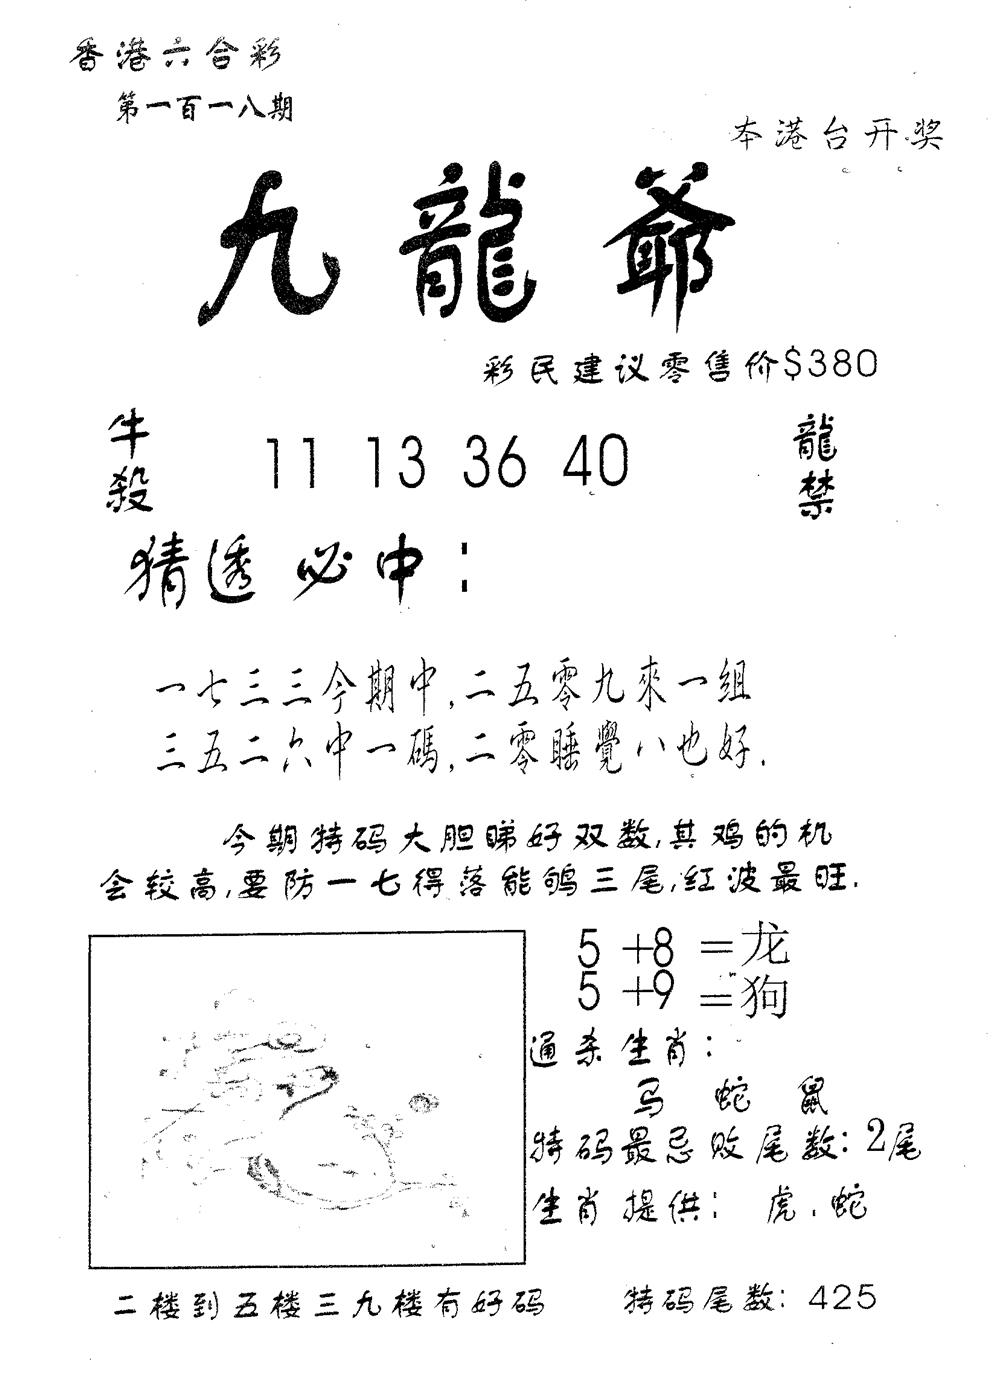 香港六合彩
第一百一八期
本港台开奖
九龍爺
彩民建议零售价$380
牛殺
11 13 36 40
龍禁
猜透必中：
一七三三今期中,二五零九來一组
三五二六中一碼,二零睡覺八也好.
今期特码大胆睇好双数,其鸡的机
会较高,要防一七得落能鸲三尾,红波最旺.
5+8=龙
5+9=狗
通杀生肖：
马 蛇 鼠
特码最忌败尾数：2尾
生肖提供： 虎.蛇
二楼到五楼三九楼有好码 特码尾数：425